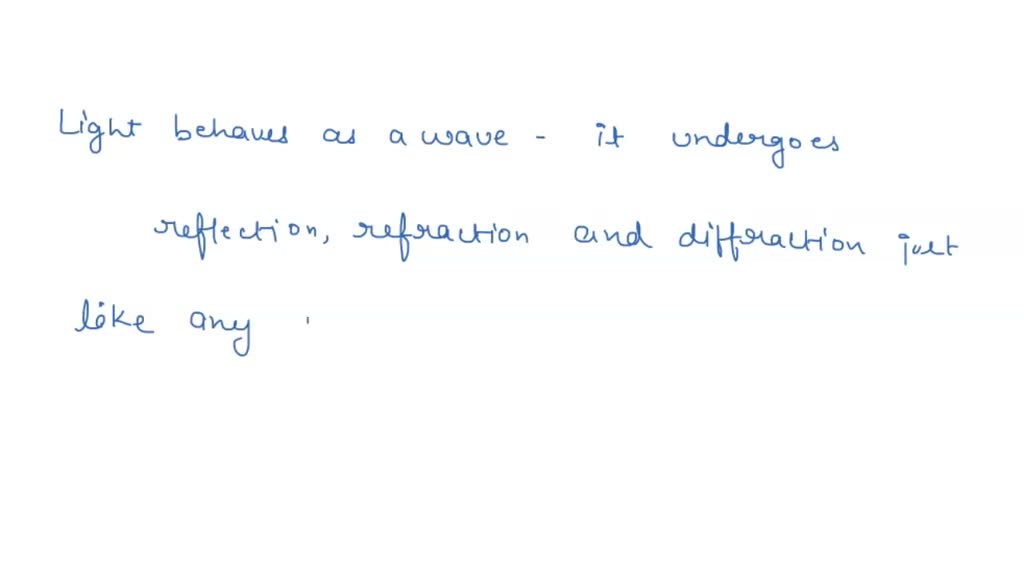 Light behaves as a wave - it undergoes
reflection, refraction and diffraction just
like any